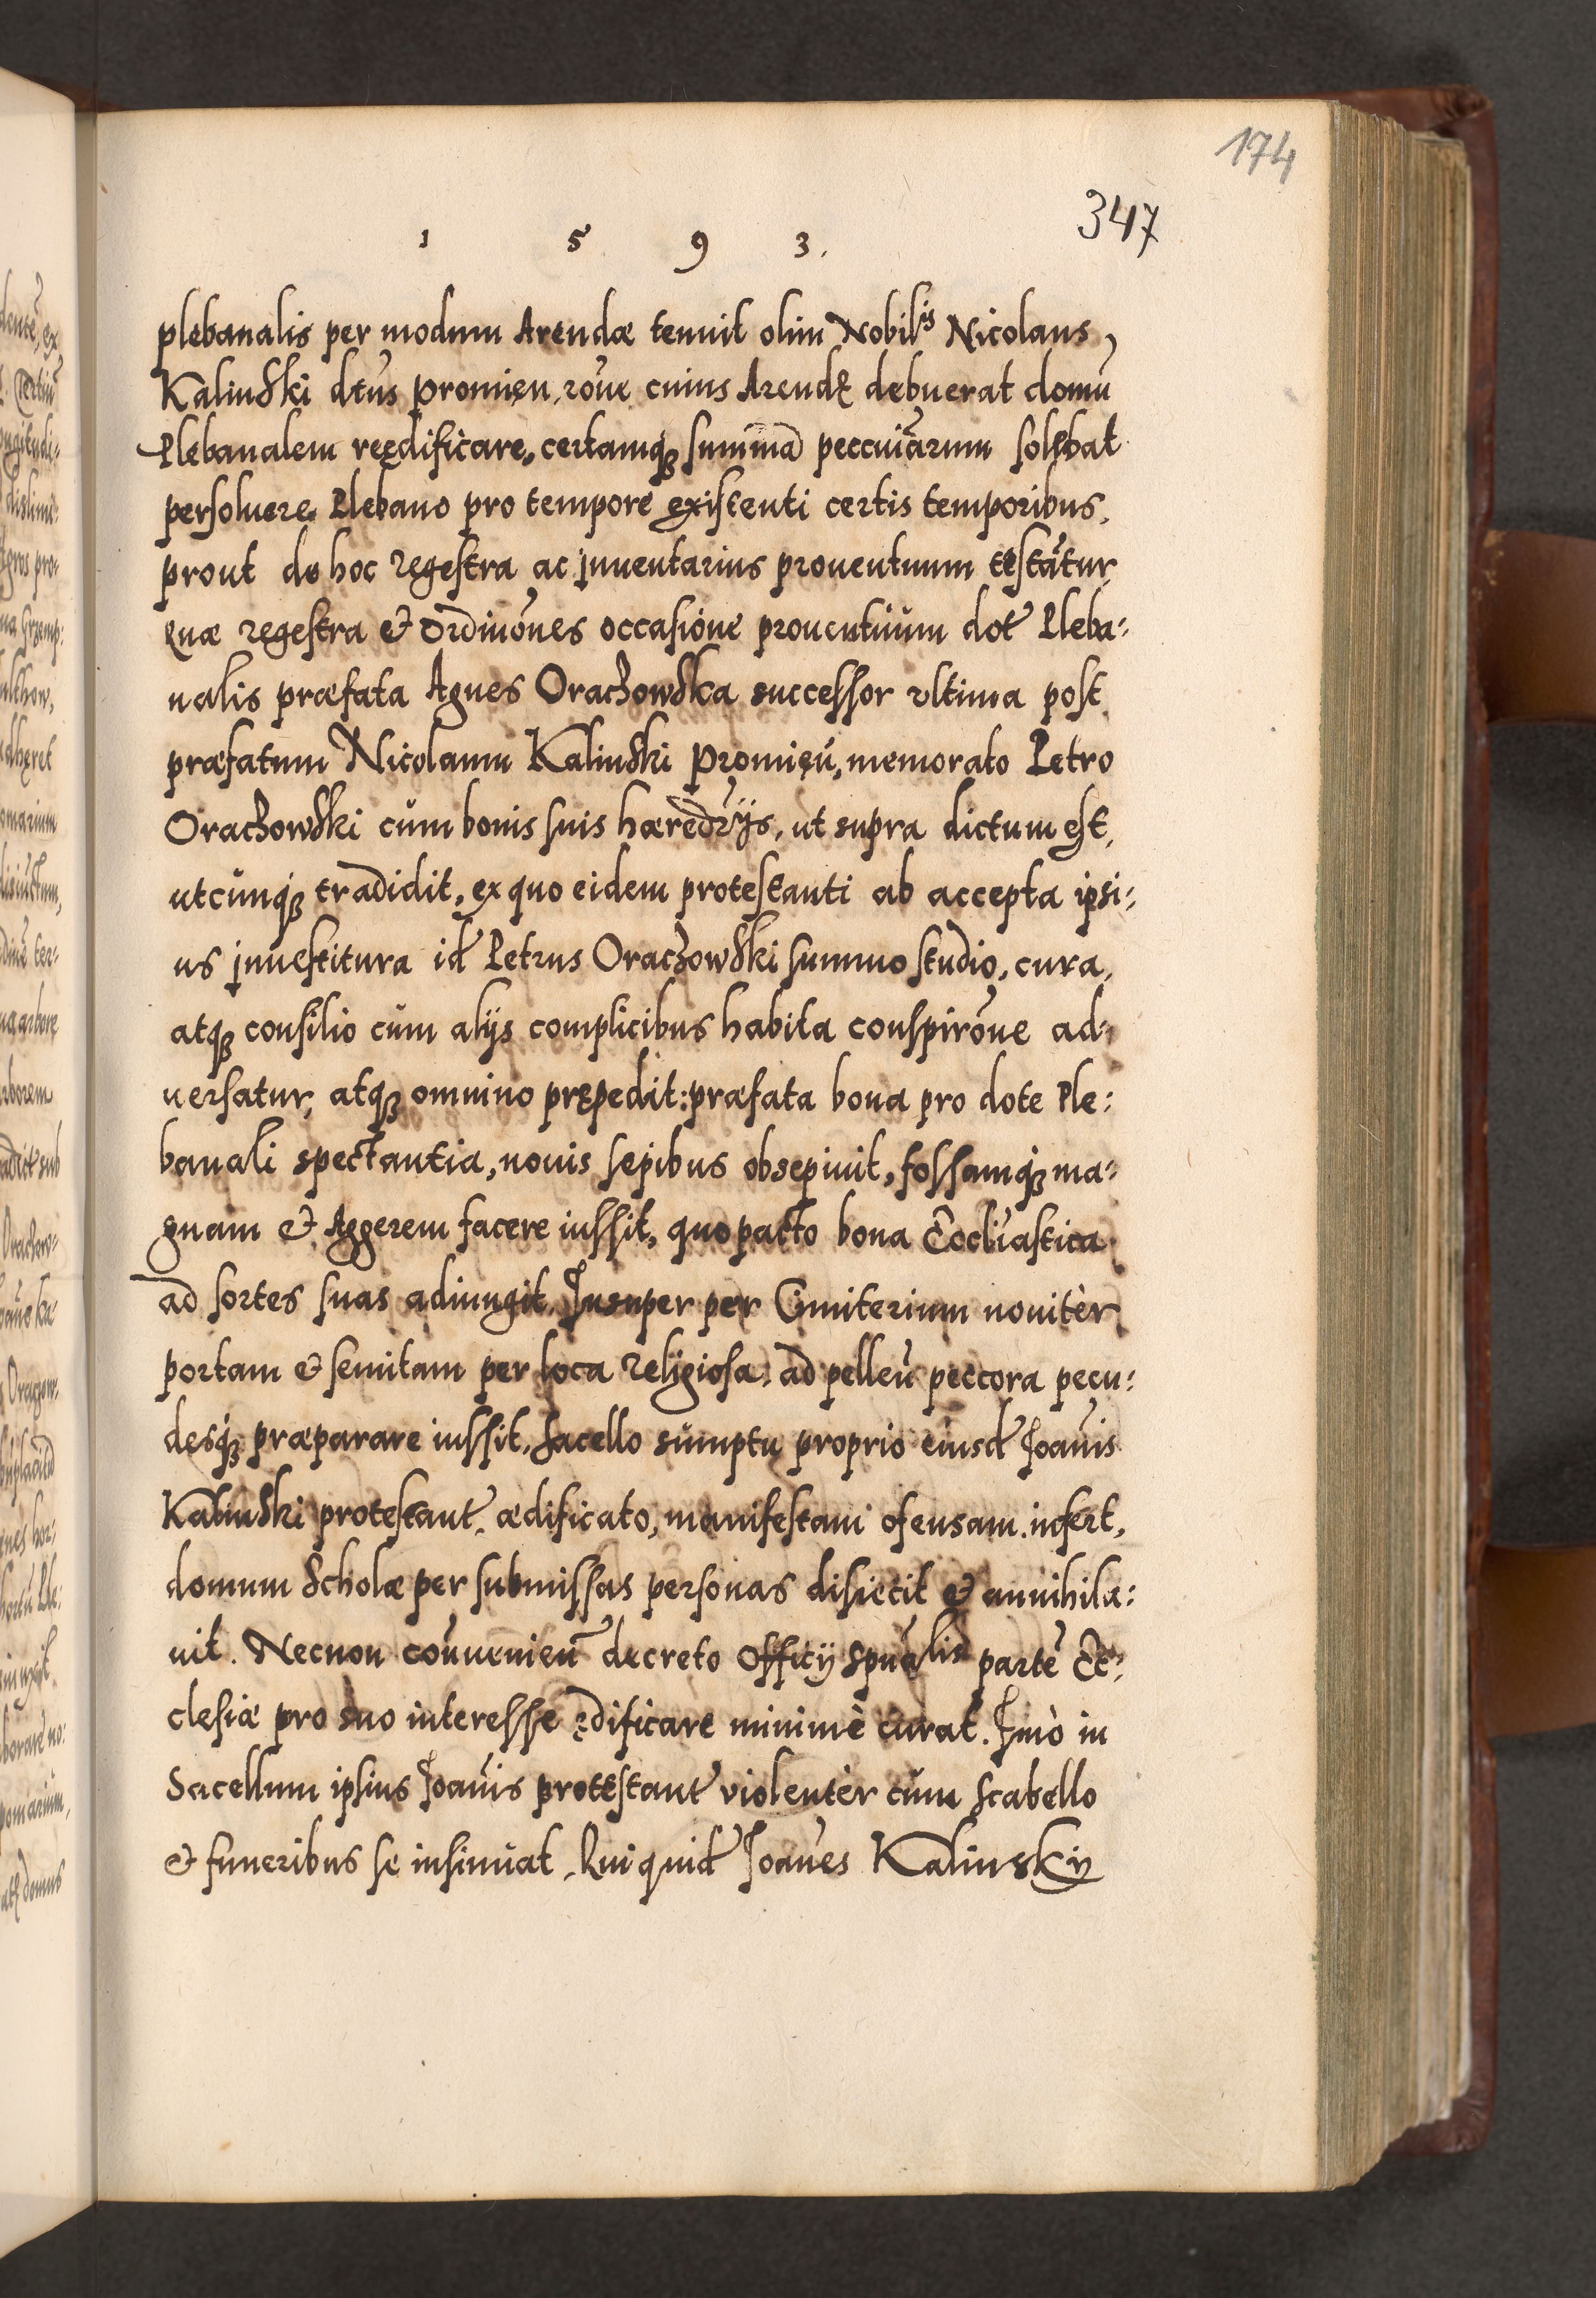 174
347
1 5 9 3.
plebanalis per modum Arendæ tenuit olim Nobilis Nicolaus,
Kalinski dtus Promień, rōne cuius Arendę debuerat domū
Plebanalem reędificare, certamq; summā peccuiārum solebat
persoluere Plebano pro tempore existenti certis temporibus,
prout de hoc regestra ac jnuentarius prouentuum testātur,
quæ regestra & ordinōnes occasione prouentuum dot Pleba-
nalis præfata Agnes Oraczowska successor vltima post
præfatum Nicolaum Kalinski Promień, memorato Petro
Oraczowski cum bonis suis hæredrijs, ut supra dictum est,
utcunq; tradidit, ex quo eidem protestanti ab accepta ipsi-
us jnuestitura id Petrus Oraczowski summo studio, cura,
atq; consilio cum alijs complicibus habita conspirōne ad-
uersatur, atq; omnino prępedit: præfata bona pro dote Ple:
banali spectantia, nouis sepibus obsepiuit, fossamq; ma-
gnam & Aggerem facere iussit, quo pacto bona Eccliastica
ad sortes suas adiungit. Insuper per Cimiterium nouiter
portam & semitam per loca religiosa, ad pelleń peccora pecu-
desq; præparare iussit, Sacello sumptu proprio eiusd Joanis
Kalinski protestant ædificato, manifestam ofensam infert,
domum Scholæ per submissas personas disiecit & annihila:
uit. Necnon conuenień decreto Officij Spuālis partē Ec-
clesiæ pro suo interesse ędificare minimè curat. Imò in
Sacellum ipsius Joanis protestant violentèr cum scabello
& funeribus se insinuat. Qui quid Joanes Kalinsky